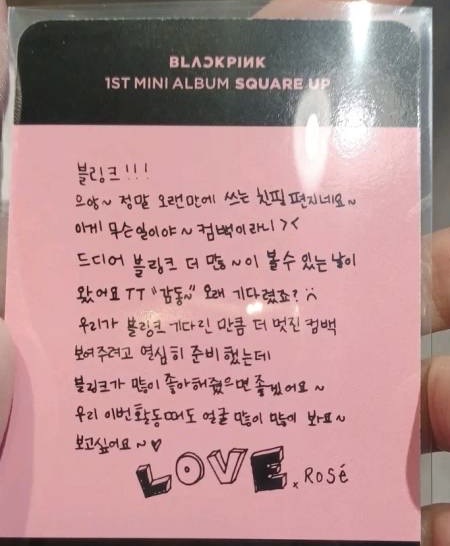 BLACKPINK
1ST MINI ALBUM SQUARE UP
블링크!!!
으앙~ 정말 오랜만에 쓰는 친필 편지네요~
이게 무슨일이야~ 컴백이라니 ><
드디어 블링크 더 많~이 볼수 있는 날이
왔어요 TT "감동~" 오래 기다렸죠? :(
우리가 블링크 기다린 만큼 더 멋진 컴백
보여주려고 열심히 준비했는데
블링크가 많이 좋아해줬으면 좋겠어요~
우리 이번활동때도 얼굴 많이 많이 봐요~
보고싶어요~♥
LOVE x ROSÉ